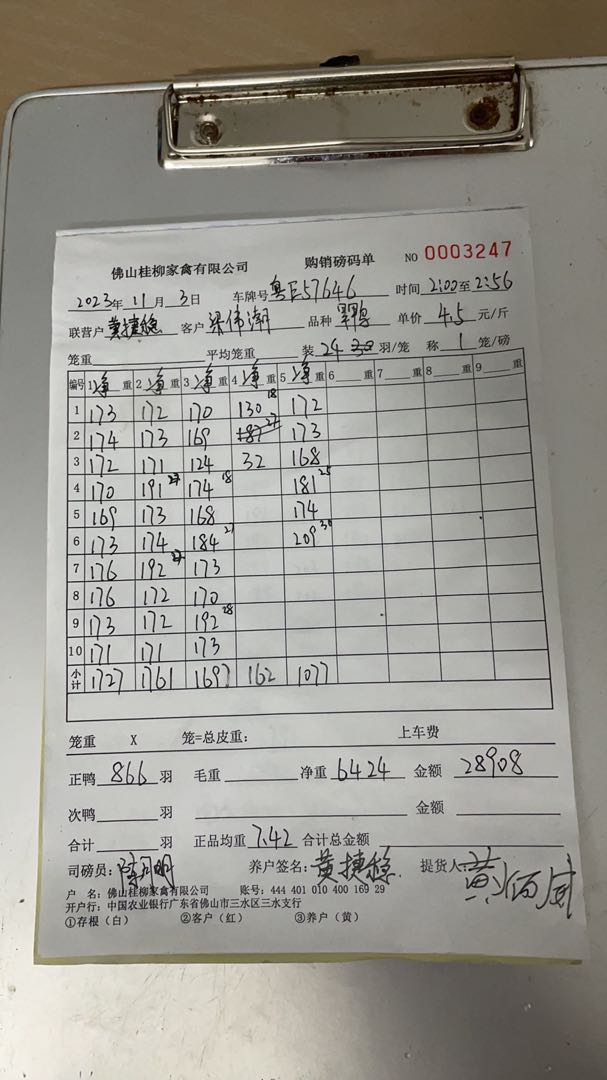 佛山桂柳家禽有限公司 购销磅码单 NO 0003247
2023年 11 月 3 日 车牌号 粤E57646 时间 2:00 至 2:56
联营户 黄捷稳 客户 梁伟潮 品种 单价 4.5 元/斤
笼重 平均笼重 装 24 羽/笼 称 1 笼/磅
编号 1 净 重 2 净 重 3 净 重 4 净 重 5 净 重 6 重 7 重 8 重 9 重
1 173 172 170 130 18 172
2 174 173 169 187 27 173
3 172 171 124 32 168
4 170 191 27 174 18 181 25
5 169 173 168 174
6 173 174 184 21 209 30
7 176 192 27 173
8 176 172 170
9 173 172 192 28
10 171 171 173
小计 1727 1761 1697 162 1077
笼重 X 笼=总皮重: 上车费
正鸭 866 羽 毛重 净重 6424 金额 28908
次鸭 羽 金额
合计 羽 正品均重 7.42 合计总金额
司磅员: 养户签名: 黄捷稳 提货人:
户 名: 佛山桂柳家禽有限公司 账号: 444 401 010 400 169 29
开户行: 中国农业银行广东省佛山市三水区三水支行
①存根（白） ②客户（红） ③养户（黄）